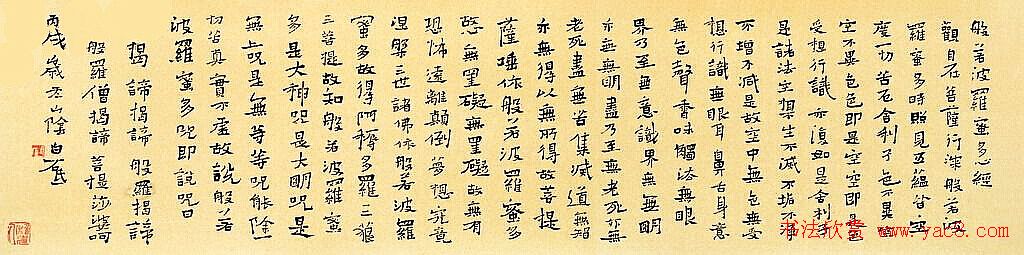 般若波羅蜜多心經
觀自在菩薩行深般若波
羅蜜多時照見五蘊皆空
度一切苦厄舍利子色不異
空不異色色即是空空即是
受想行識亦復如是舍利子
是諸法空相不生不滅不垢不淨
不增不減是故空中無色無受
想行識無眼耳鼻舌身意
無色聲香味觸法無眼
界乃至無意識界無無明
亦無無明盡乃至無老死亦無
老死盡無苦集滅道無智
亦無得以無所得故菩提
薩埵依般若波羅蜜多
故無罣礙無罣礙故無有
恐怖遠離顛倒夢想究竟
涅槃三世諸佛依般若波羅
蜜多故得阿耨多羅三藐
三菩提故知般若波羅蜜
多是大神咒是大明咒是
無上咒是無等等咒能除一
切苦真實不虛故說般若
波羅蜜多咒即說咒曰
揭諦揭諦般羅揭諦
般羅僧揭諦菩提莎婆訶
丙戌歲
山陰白蕉
书法欣赏 www.yac8.com